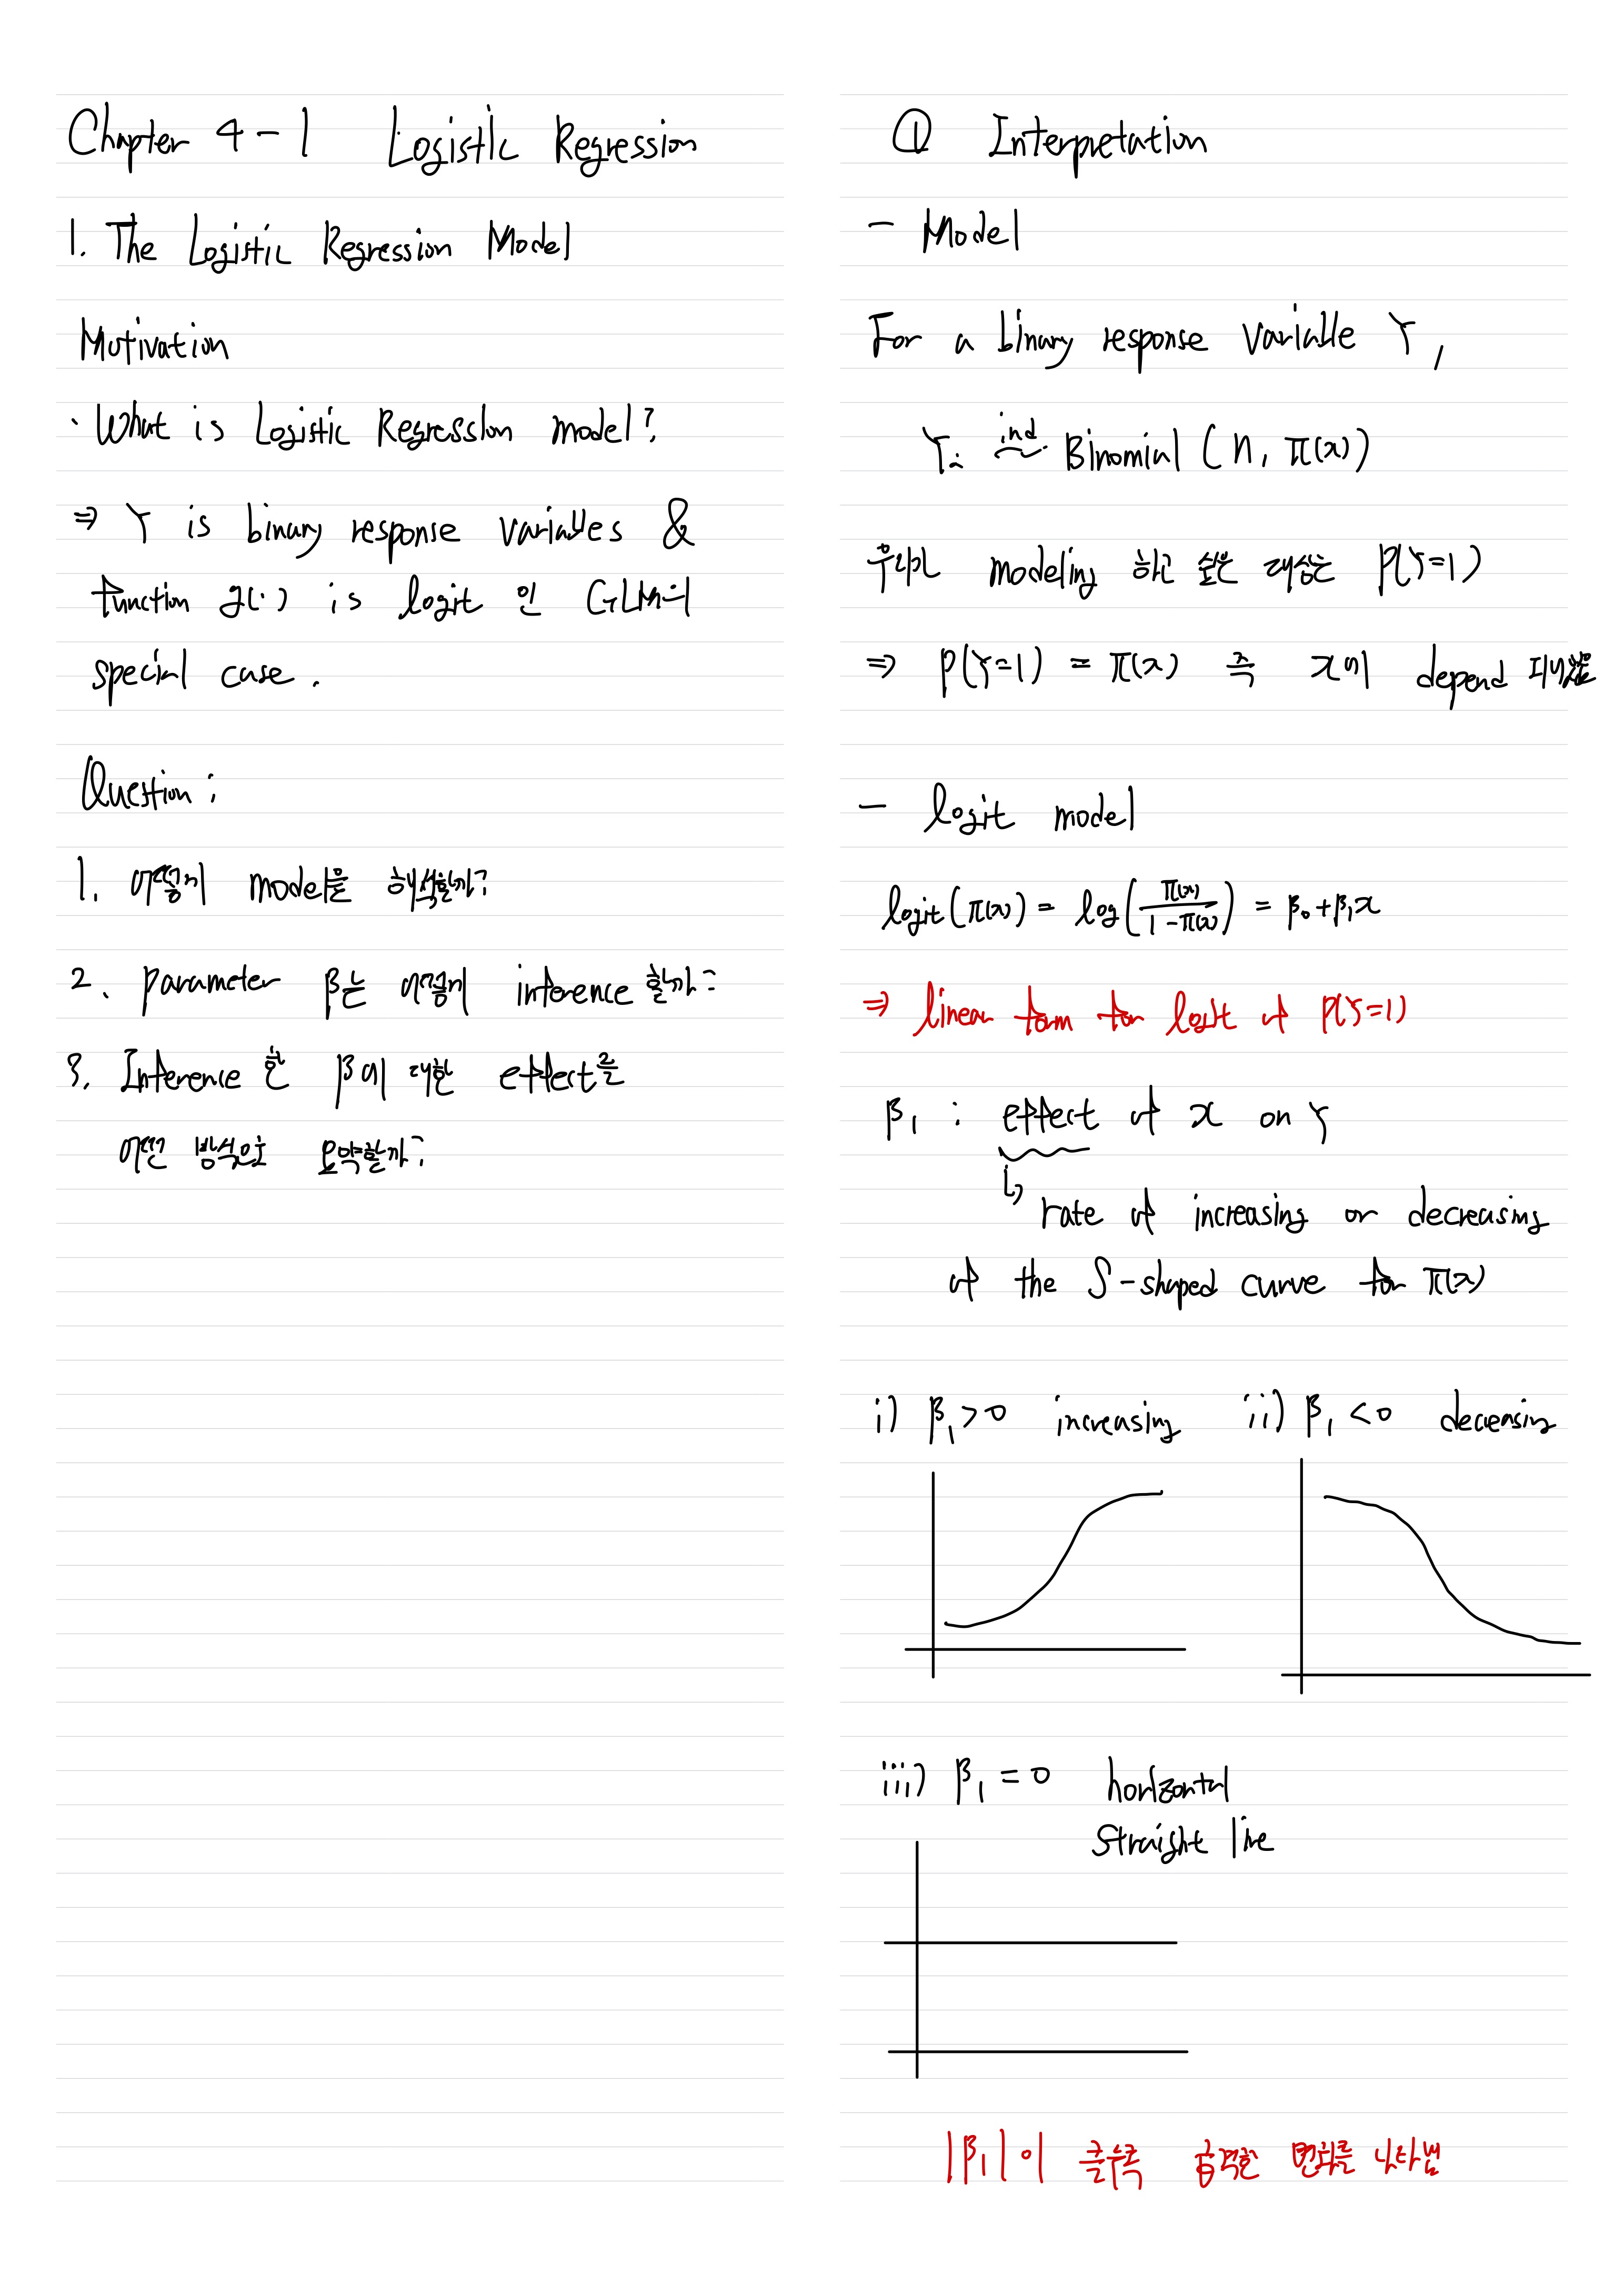 Chapter 4-1 Logistic Regression
1. The Logistic Regression Model
Motivation
· What is Logistic Regression model?
⇒ Y is binary response variables &
function g(·) is logit 인 GLM의
special case.
Question :
1. 어떻게 model을 해석할까?
2. parameter β는 어떻게 inference 할까?
3. Inference 한 β에 대한 effect를
어떤 방식으로 요약할까?
① Interpretation
- Model
For a binary response variable Y,
Yi ~ind Binomial (n, π(x))
우리가 modeling 하고 싶은 대상은 P(Y=1)
⇒ P(Y=1) = π(x) 즉 x에 depend 되어있음
- logit model
logit(π(x)) = log(π(x)/(1-π(x))) = β₀+β₁x
⇒ linear form for logit of P(Y=1)
β₁ : effect of x on Y
↳ rate of increasing or decreasing
of the S-shaped curve for π(x)
i) β₁>0 increasing ii) β₁<0 decreasing
iii) β₁=0 horizontal
straight line
|β₁|이 클수록 급격한 변화를 나타냄